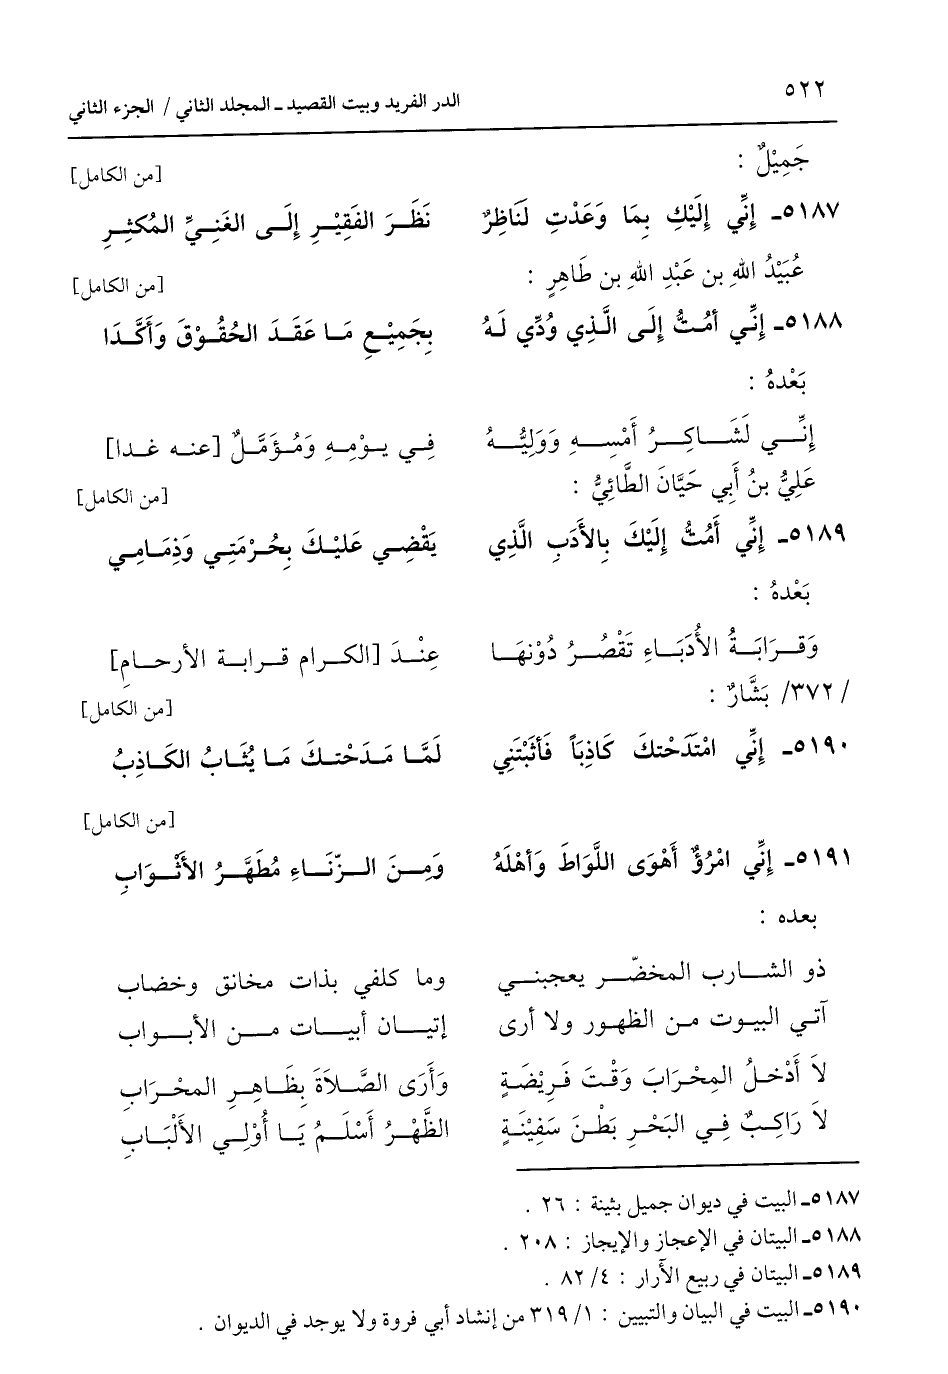 ٥٢٢ الدر الفريد وبيت القصيد ـ المجلد الثاني / الجزء الثاني
جَمِيْلٌ :
[من الكامل]
٥١٨٧ـ إِنِّي إِلَيْكِ بِمَا وَعَدْتِ لَنَاظِرٌ نَظَرَ الفَقِيْرِ إِلَى الغَنِيِّ المُكثِرِ
عُبَيْدُ اللهِ بن عَبْدِ اللهِ بن طَاهِرٍ :
[من الكامل]
٥١٨٨ـ إِنِّي أمُتُّ إِلَى الَّذِي وُدِّي لَهُ بِجَمِيْعِ مَا عَقَدَ الحُقُوْقَ وَأَكَّدَا
بَعْدهُ :
إِنِّي لَشَاكِرُ أَمْسِهِ وَوَلِيُّهُ فِي يوْمِهِ وَمُؤَمَّلٌ [عنه غدا]
عَلِيُّ بنُ أَبِي حَيَّانَ الطَّائِيُّ :
[من الكامل]
٥١٨٩ـ إِنِّي أَمُتُّ إِلَيْكَ بِالأَدَبِ الَّذِي يَقْضِي عَليْكَ بِحُرْمَتِي وَذِمَامِي
بَعْدهُ :
وَقرَابَةُ الأُدَبَاءِ تَقْصُرُ دُوْنهَا عِنْدَ [الكرام قرابة الأرحامِ]
/ ٣٧٢/ بَشَّارٌ :
[من الكامل]
٥١٩٠ـ إِنِّي امْتَدَحْتكَ كَاذِبَاً فَأَثبْتَنِي لَمَّا مَدَحْتكَ مَا يُثَابُ الكَاذِبُ
[من الكامل]
٥١٩١ـ إِنِّي امْرُؤٌ أَهْوَى اللَّوَاطَ وَأهْلَهُ وَمِنَ الزّنَاءِ مُطَهَّرُ الأَثْوَابِ
بعده :
ذو الشارب المخضّر يعجبني وما كلفي بذات مخانق وخضاب
آتي البيوت من الظهور ولا أرى إتيان أبيات من الأبواب
لاَ أَدْخلُ المِحْرَابَ وَقْتَ فَرِيْضَةٍ وَأَرَى الصَّلاَةَ بِظَاهِرِ المحْرَابِ
لاَ رَاكِبٌ فِي البَحْرِ بَطْنَ سَفِيْنَةٍ الظَّهْرُ أَسْلَمُ يَا أُوْلِي الأَلْبَابِ
٥١٨٧ـ البيت في ديوان جميل بثينة : ٢٦ .
٥١٨٨ـ البيتان في الإعجاز والإيجاز : ٢٠٨ .
٥١٨٩ـ البيتان في ربيع الأرار : ٤/ ٨٢ .
٥١٩٠ـ البيت في البيان والتبيين : ١/ ٣١٩ من إنشاد أبي فروة ولا يوجد في الديوان .